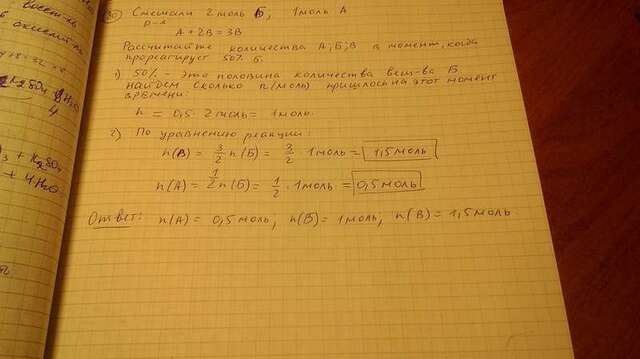 Смешали 2 моль Б, 1 моль А
р-я
А + 2Б = 3В
Рассчитайте количества А, Б, В в момент, когда
прореагирует 50% Б.
1) 50% - это половина количества вещ-ва Б
найдем сколько n(моль) пришлось на этот момент
времени:
n = 0,5 · 2 моль = 1 моль.
2) По уравнению реакции:
n(В) = 3/2 n(Б) = 3/2 · 1 моль = 1,5 моль
n(А) = 1/2 n(Б) = 1/2 · 1 моль = 0,5 моль
Ответ: n(А) = 0,5 моль, n(Б) = 1 моль, n(В) = 1,5 моль